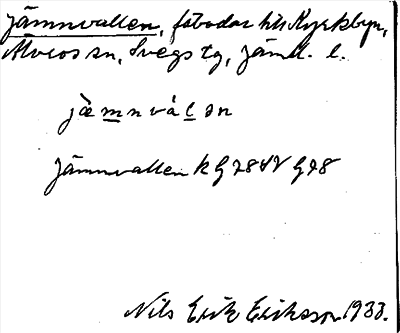 Jämnvallen, fäbodar till Kyrkbyn,
Älvros sn, Svegs tg, Jämtl. l.
jämnválən
Jämnvallen k G 28 SV G 28
Nils Erik Eriksson 1933.